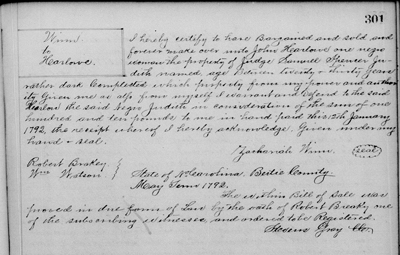 301
Winn
to
Hearlowe.
I hereby certify to have Bargained and sold and
forever make over unto John Hearlowe one negro
woman the property of Judge Samuel Spencer Ju-
dith named, age between twenty & thirty years
rather dark Complected which property from my power and author-
ity given me as atty from myself I warrant and defend to the said
Hearlow the said negro Judith in consideration of the sum of one
hundred and ten pounds to me in hand paid this 12th January
1792, the receipt whereof I hereby acknowledge. Given under my
hand & seal.
Zachariah Winn. (seal)
Robert Brakey }
Wm Watson }
State of No Carolina Bertie County
May Term 1792.
The within Bill of Sale was
proved in due form of Law by the oath of Robert Breaky one
of the subscribing witnesses and ordered to be Registered.
Stevens Gray Clk.